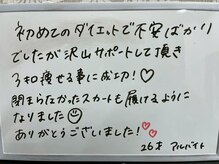 初めてのダイエットで不安ばかり
でしたが沢山サポートして頂き
3キロ痩せる事に成功!♡
閉まらなかったスカートも履けるように
なりました😊
ありがとうございました!♡♡
26才 アルバイト